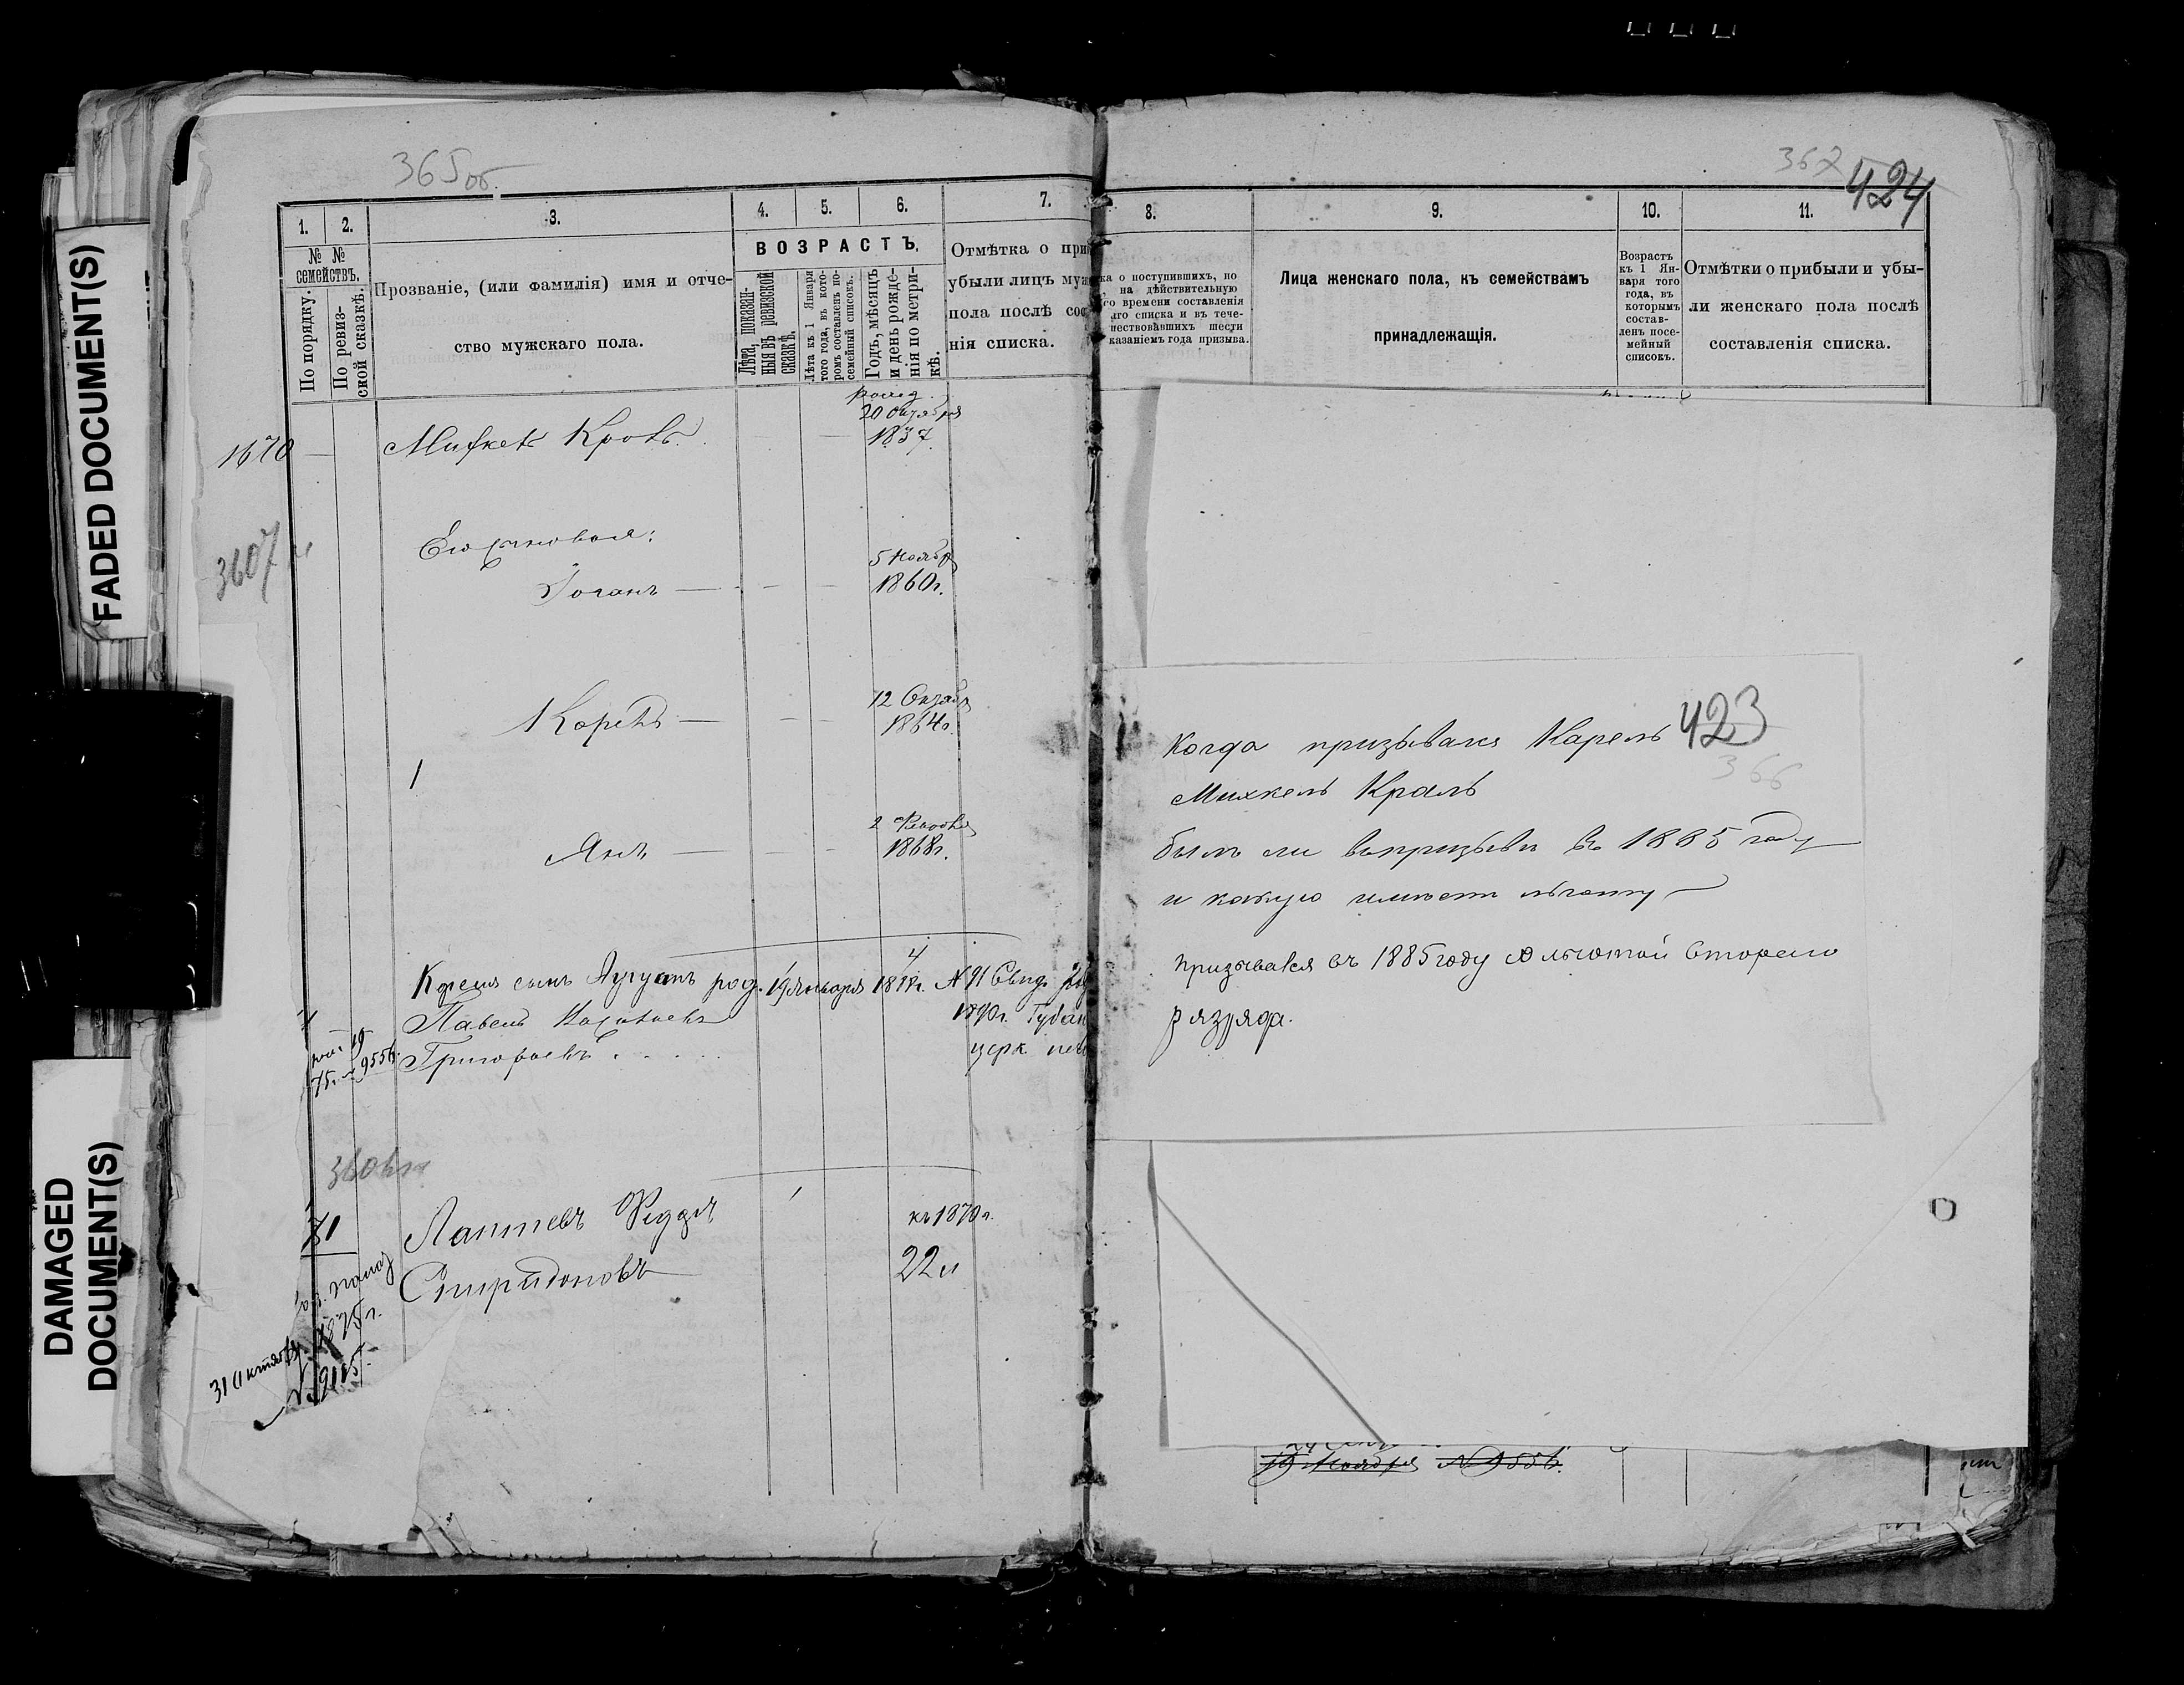 FADED DOCUMENT(S)
DAMAGED
DOCUMENT(S)
365об.
1. 2. 3. 4. 5. 6. 7.
№ №
семействъ.
По порядку.
По ревиз-
ской сказкѣ.
Прозваніе, (или фамилія) имя и отче-
ство мужскаго пола.
ВОЗРАСТЪ.
Лѣта, показан-
ныя въ ревизской
сказкѣ.
Лѣта къ 1 Января
того года, въ кото-
ромъ составленъ по-
семейный списокъ.
Годъ, мѣсяцъ
и день рожде-
нія по метри-
кѣ.
Отмѣтка о при
убыли лицъ муж
пола послѣ сос
нія списка.
1670
20 Октября
1837.
3607
Его сыновья:
5 Ноября
Іоганъ
1860г.
12 Октября
Карель
1864г.
1
2
Янъ
1868г.
4
Карела сынъ Августъ род. 19 Января г. № 91 Свид.
Павелъ
1890г.
Григорьевъ
церк.
955
71
Лаптевъ
Спиридоновъ
къ 1870г.
22
31 Октября 1875г.
№
362
424
8. 9. 10. 11.
ка о поступившихъ, по
на дѣйствительную
го времени составленія
го списка и въ тече-
шествовавшихъ шести
казаніемъ года призыва.
Лица женскаго пола, къ семействамъ
принадлежащія.
Возрастъ
къ 1 Ян-
варя того
года, въ
которымъ
состав-
ленъ посе-
мейный
списокъ.
Отмѣтки о прибыли и убы-
ли женскаго пола послѣ
составленія списка.
423
366
Когда призывался Карель
Михкель Краль
былъ ли въ призывѣ въ 1885 году
и какую имѣетъ льготу
призывался въ 1885 году со льготой второго
разряда.
19 Ноября № 9556.